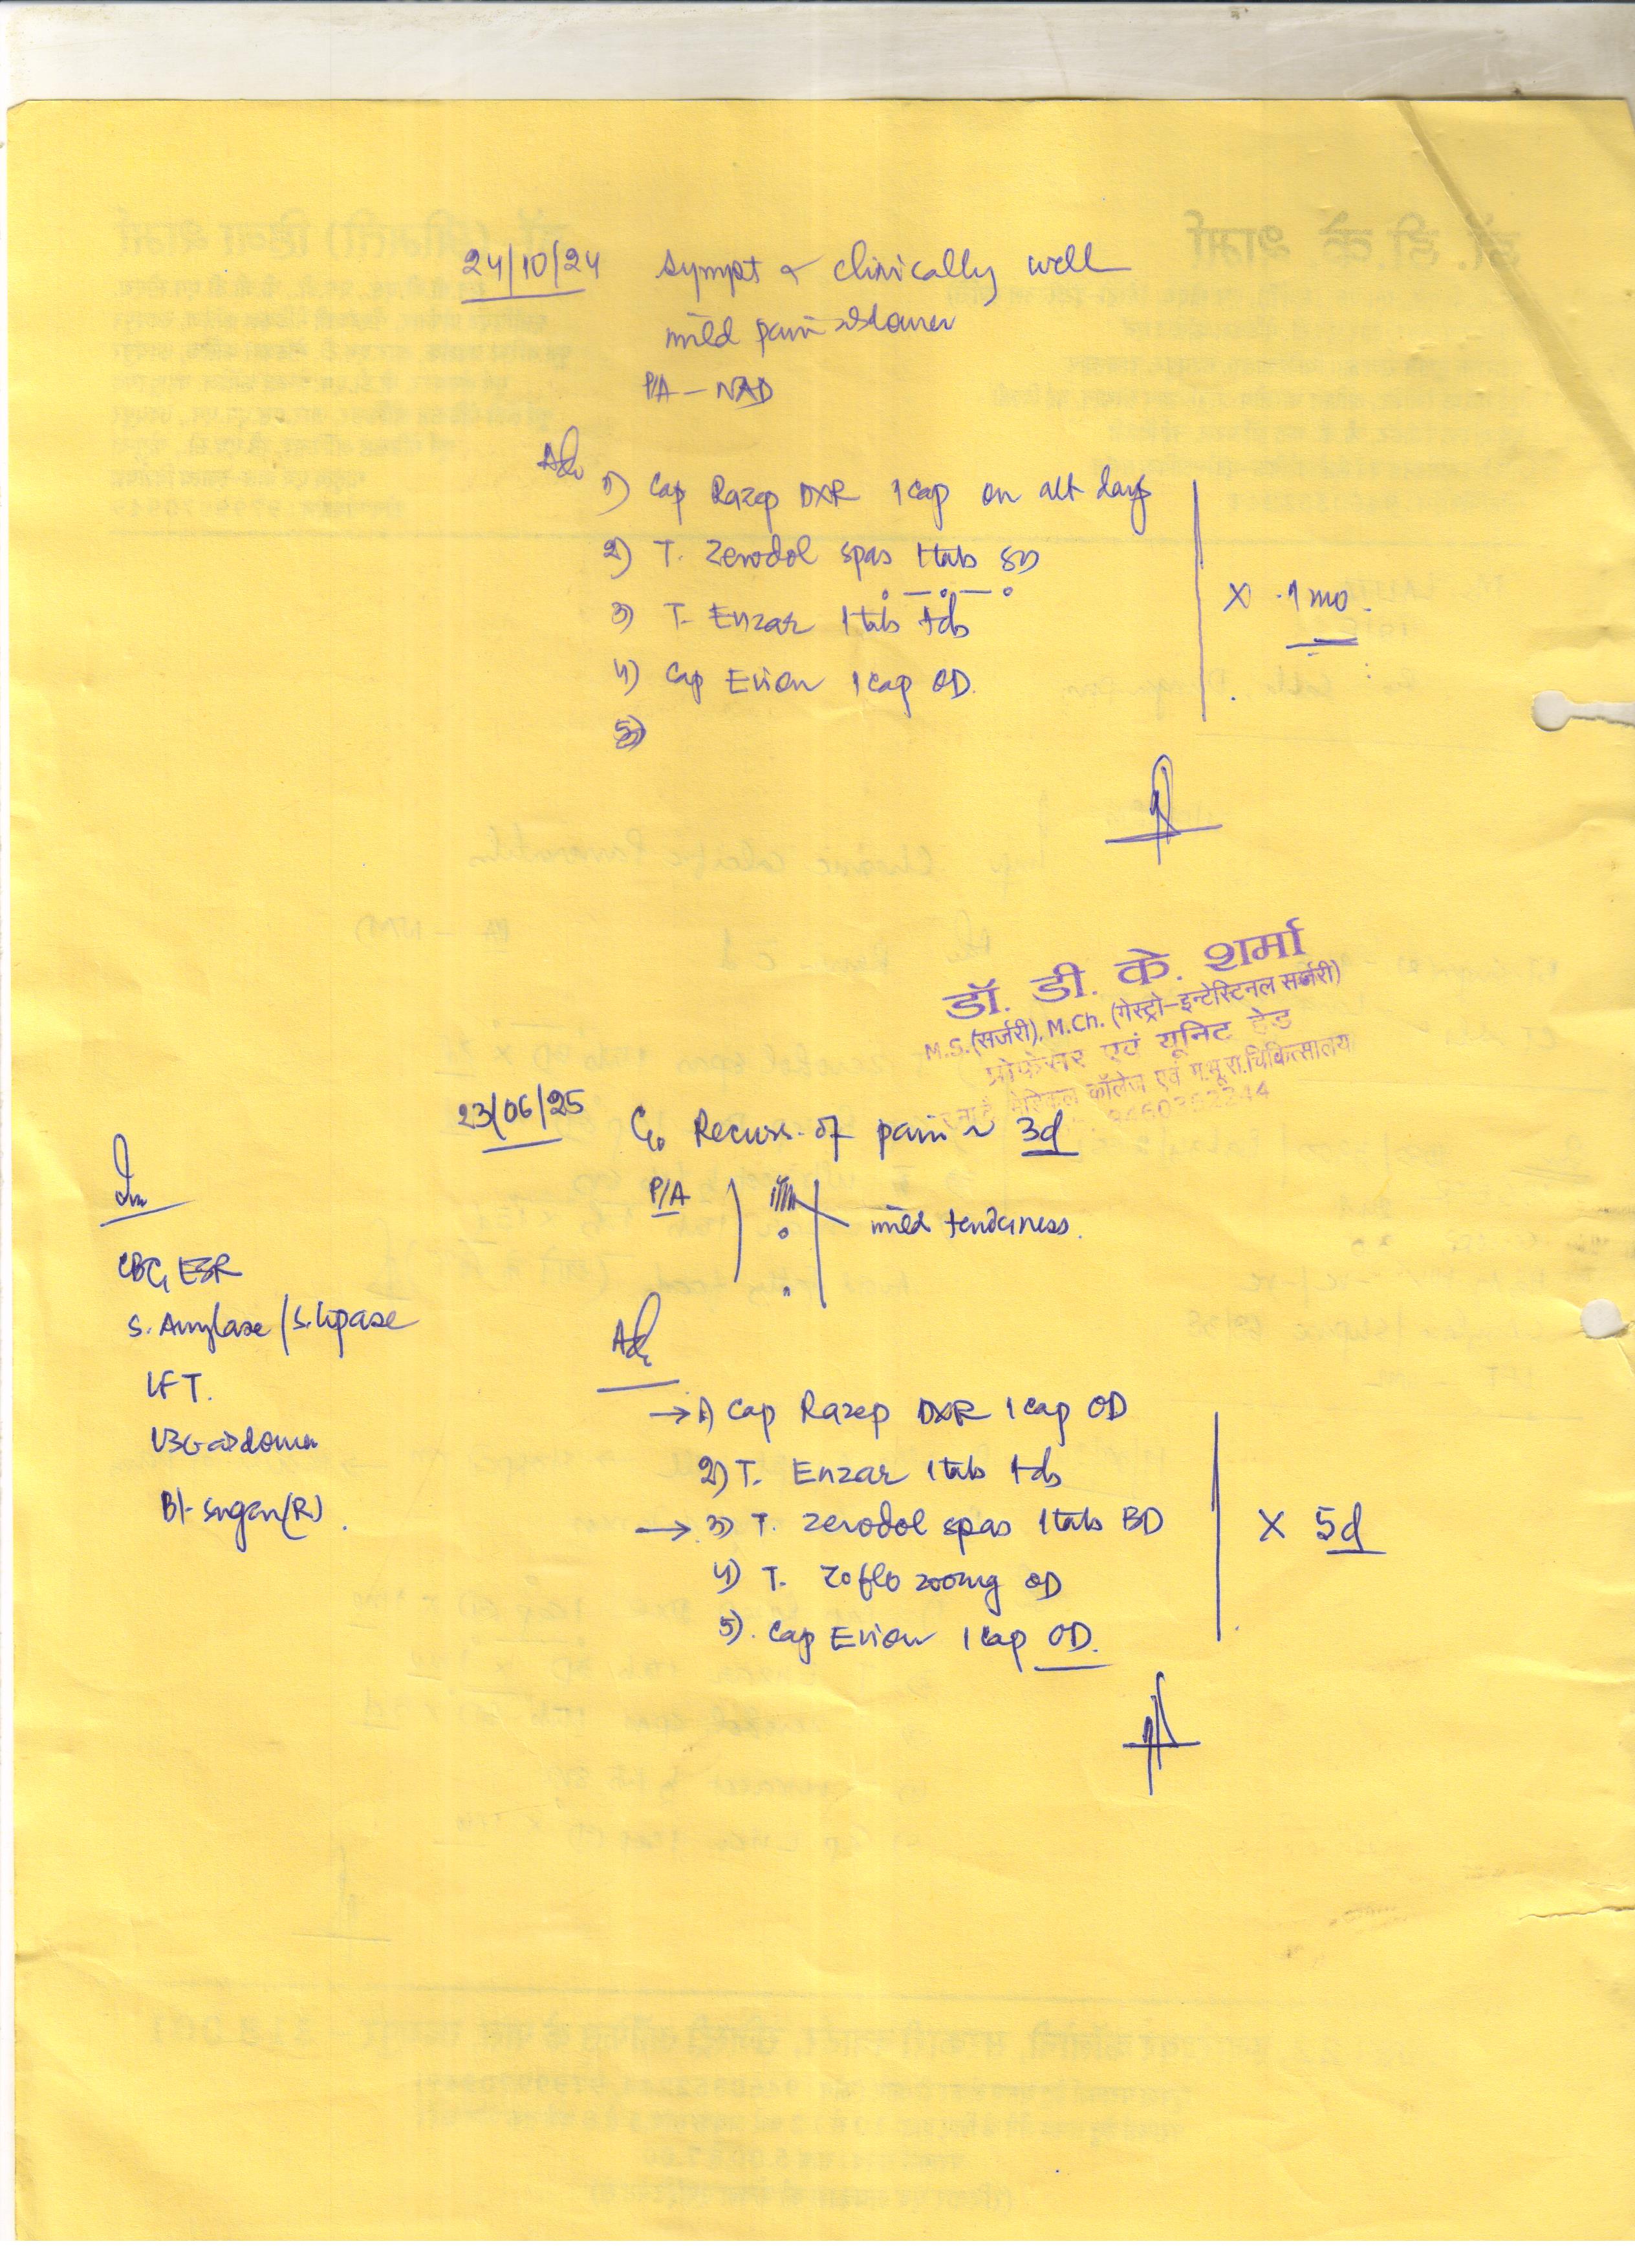 24/10/24 sympt & clinically well
mild pain abdomen
P/A - NAD
Adv
1) Cap Razep DXR 1 cap on alt days
2) T. Zerodol spas 1 tab SOS
3) T. Enzar 1 tab tds
4) Cap Evion 1 cap OD.
5)
X 1 mo.
डॉ. डी. के. शर्मा
M.S. (सर्जरी), M.Ch. (गेस्ट्रो-इन्टेस्टिनल सर्जरी)
प्रोफेसर एवं यूनिट हेड
मेडिकल कॉलेज एवं म.भू.रा.चिकित्सालय
23/06/25 C/o Recurr. of pain ~ 3d
P/A mild tenderness.
Inv
CBC, ESR
S. Amylase / S. lipase
LFT.
USG abdomen
Bl. sugar (R).
Adv
→ 1) Cap Razep DXR 1 cap OD
2) T. Enzar 1 tab tds
→ 3) T. Zerodol spas 1 tab BD
4) T. Zoflo 200mg OD
5). Cap Evion 1 cap OD.
X 5d